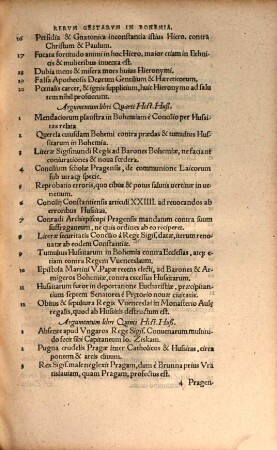 RERVM GESTARVM IN BOHEMIA.
16 Persidia & Gnatonica inconstantia illius Hiero. contra
Christum & Paulum.
17 Fucata fortitudo animi in hoc Hiero. maior etiam in Ethni-
cis & mulieribus inuenta est.
18 Dubia mens & misera mors huius Hieronymi.
19 Falsa Apotheosis Deorum Gentilium & Hæreticorum,
20 Pœnalis carcer, & ignis supplicium, huic Hieronymo ad salu
tem nihil profuerunt.
Argumentum libri Quarti Hist. Huß.
1 Mendaciorum plaustra in Bohemiam è Concilio per Hussi-
tas relata
2 Querela eiusdam Bohemi contra prædas & tumultus Hus-
sitarum in Bohemia.
3 Literæ Sigismundi Regis ad Barones Bohemiæ, ne faciant
coniurationes & noua fœdera.
4 Concilium scholæ Pragensis, de communione Laicorum
sub utraq; specie.
5 Reprobatio erroris, quo cibus & potus salutis uertitur in ue
nenum.
6 Concilij Constantiensis articuli XXIIII. ad reuocandos ab
erroribus Husitas.
7 Conradi Archiepiscopi Pragensis mandatum contra suum
suffraganeum, ne quis ordines ab eo reciperet.
8 Literæ securitatis Concilio à Rege Sigis. datæ, iterum renou-
atæ ab eodem Constantiæ.
9 Tumultus Husitarum in Bohemia contra Ecclesias, atq; e-
tiam contra Regem Vuenceslaum.
10 Epistola Martini V. Papæ recens electi, ad Barones & Ar-
migeros Bohemiæ, contra excessus Husitarum.
11 Husitarum furor in deportatione Eucharistiæ, præcipitan-
tium septem Senatores è Prætorio nouæ ciuitatis.
12 Obitus & sepultura Regis Vuenceslai in Monasterio Aulæ
regalis, quod ab Husitis destructum est.
Argumentum libri Quinti Hist. Huß.
1 Absens apud Vngaros Rex Sigis. Conuentum matrem mundo
fecit sibi Capitaneum Io. Ziskam.
2 Pugna crudelis Pragæ inter Catholicos & Husitas, circa
pontem & arcis cliuum.
3 Rex Sigis. malens neglexit Pragam, dum è Brunna prius Vra
tislauiam, quam Pragam, profectus est.
4 Pragen-